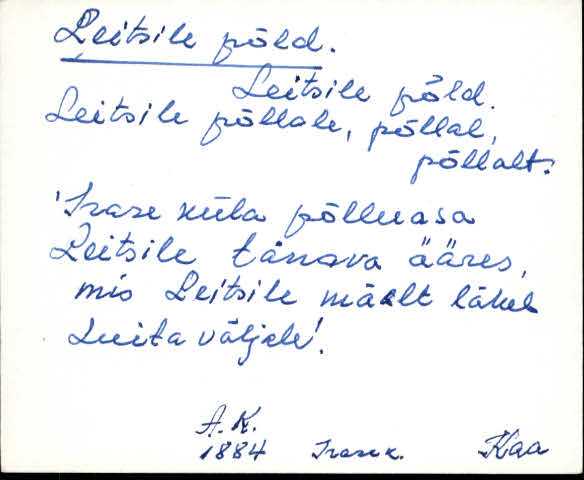 Leitsile põld.
Leitsile põld.
Leitsile põllale, põllal,
põllalt.
'Irase küla põlluasa
Leitsile tänava ääres,
mis Leitsile mäelt läheb
Luita väljale'.
A. K.
1884 Irase k. Kaa